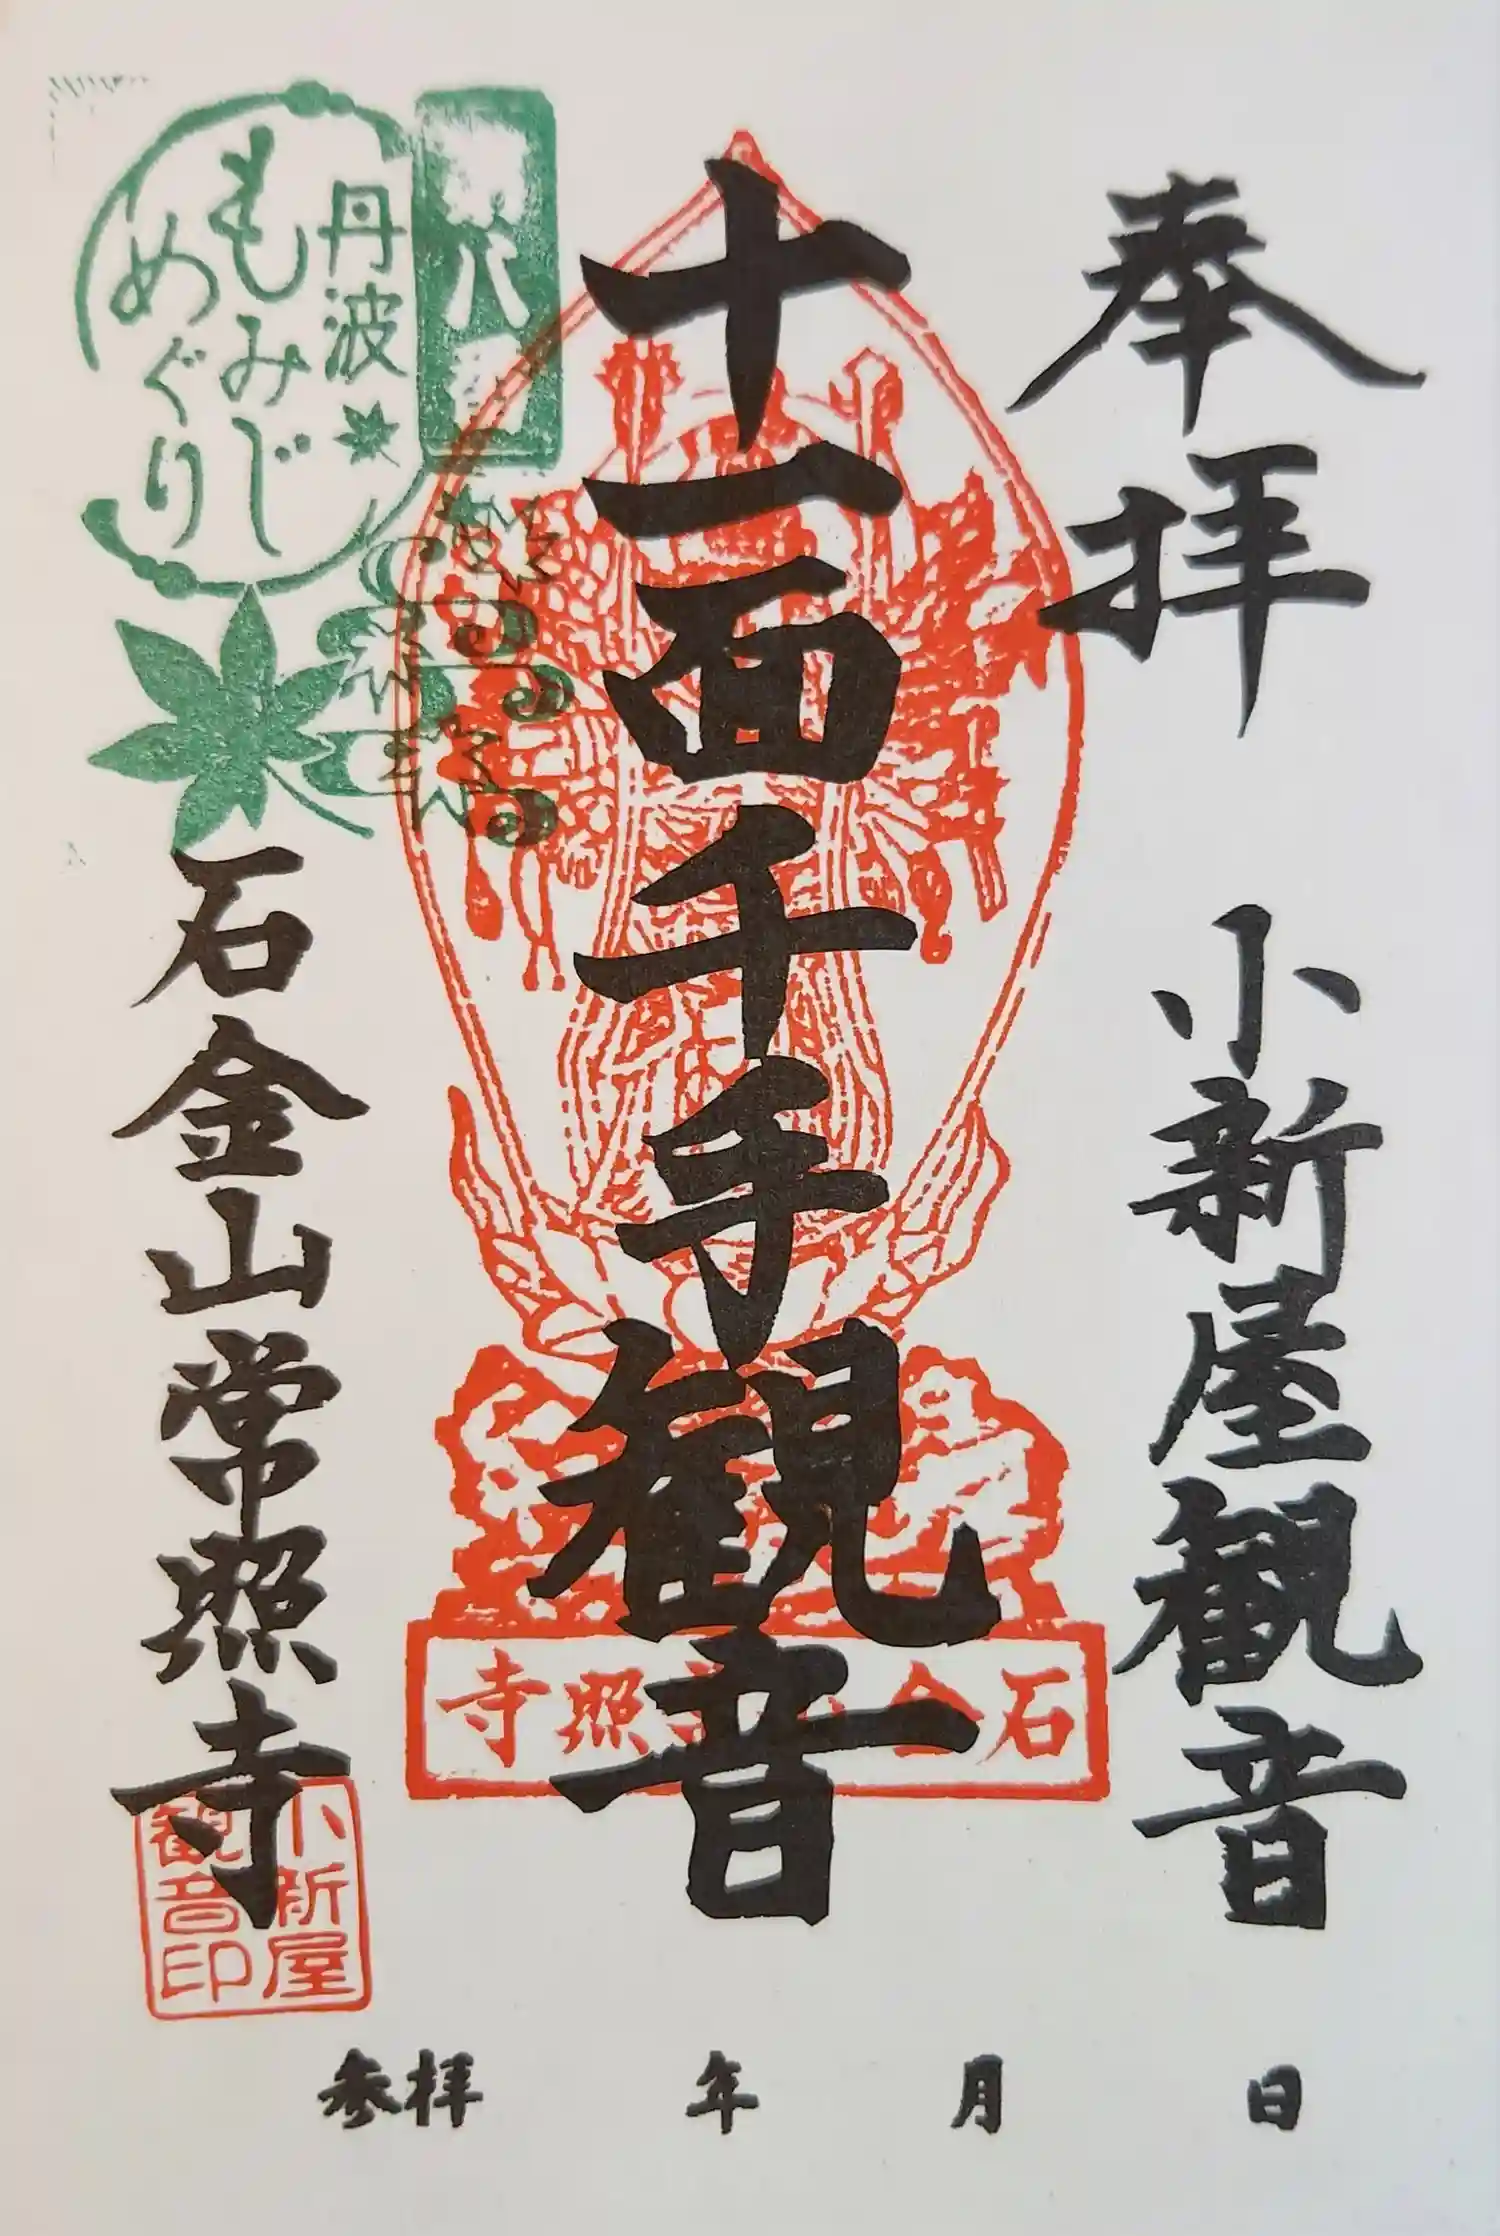 奉拝
小新屋観音
十一面千手観音
第八番
丹波
もみじ
めぐり
石金山常照寺
石金山常照寺
小新屋
観音印
参拝 年 月 日